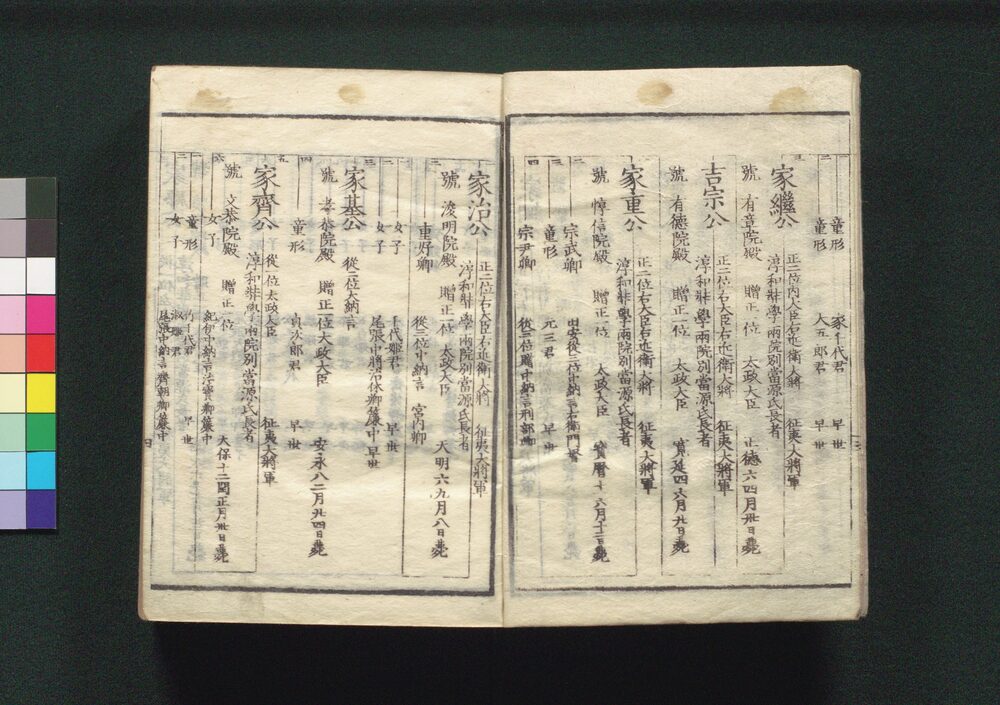 一 童形 家千代君 早世
二 童形 大五郎君 早世
三
家繼公 正二位内大臣右近衛大將 征夷大將軍
淳和奘學両院別當源氏長者
號 有章院殿 贈正一位 太政大臣 正德六四月卅日薨
吉宗公 正二位右大臣右近衛大將 征夷大將軍
淳和奘學両院別當源氏長者
號 有德院殿 贈正一位 太政大臣 寛延四六月廿日薨
家重公 正二位右大臣右近衛大將 征夷大將軍
淳和奘學両院別當源氏長者
號 惇信院殿 贈正一位 太政大臣 寳曆十一六月十二日薨
二 宗武卿 田安從三位中納言右衛門督
三 童形 元三君 早世
四 宗尹卿 從三位 中納言刑部卿
家治公 正二位右大臣右近衛大將 征夷大將軍
淳和奘學両院別當源氏長者
號 浚明院殿 贈正一位 太政大臣 天明六九月八日薨
二 重好卿 從三位中納言 宮内卿
一 女子 千代姫君 早世
二 女子 尾張中將治休卿簾中 早世
三
家基公 從二位大納言
號 孝恭院殿 贈正一位太政大臣 安永八二月廿四日薨
四 童形 貞次郎君 早世
五
家齊公 從一位太政大臣 征夷大將軍
淳和奘學両院別當源氏長者
號 文恭院殿 贈正一位 天保十二閏正月卅日薨
六 女子 紀伊中納言治寳卿簾中
一 童形 竹千代君 早世
二 女子 淑姫君
尾張中納言齊朝卿簾中
四